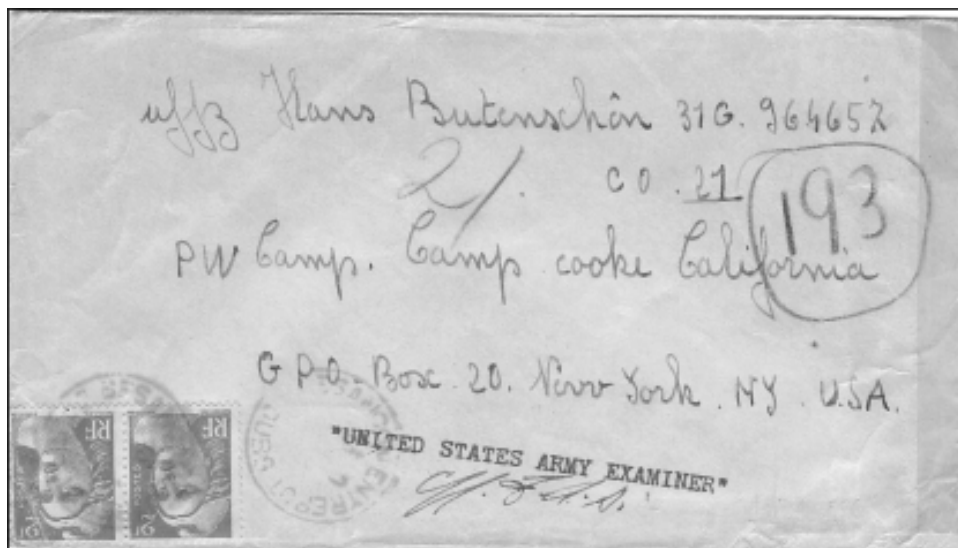 uffz Hans Butenschön 31G. 964652
CO. 21
2/.
193
PW Camp. Camp cooke California
G P O. Box 20. Nivv York. NY. U.S.A.
"UNITED STATES ARMY EXAMINER"
RF
RF
2F
2F